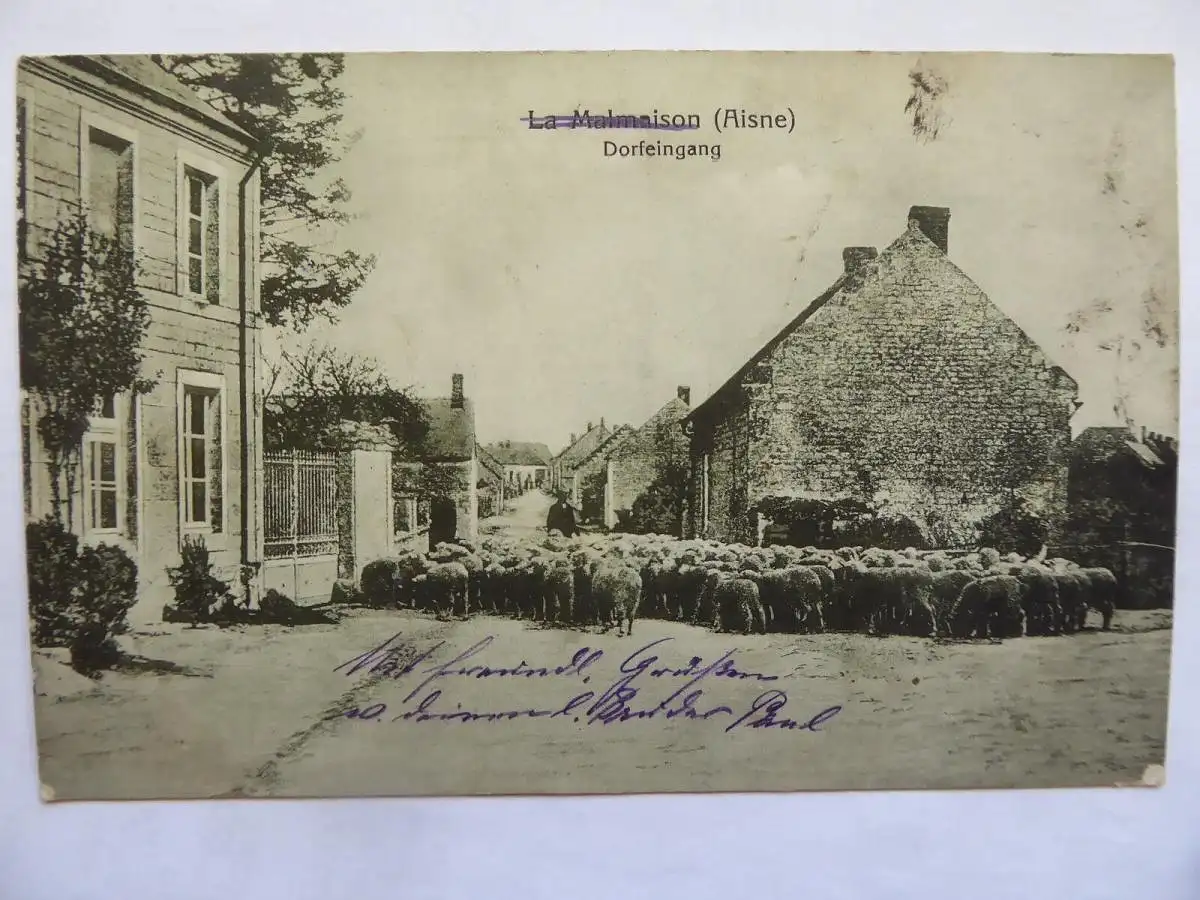 La Malmaison (Aisne)
Dorfeingang
Mit freundl. Grüßen
v. deinem l. Bruder Paul